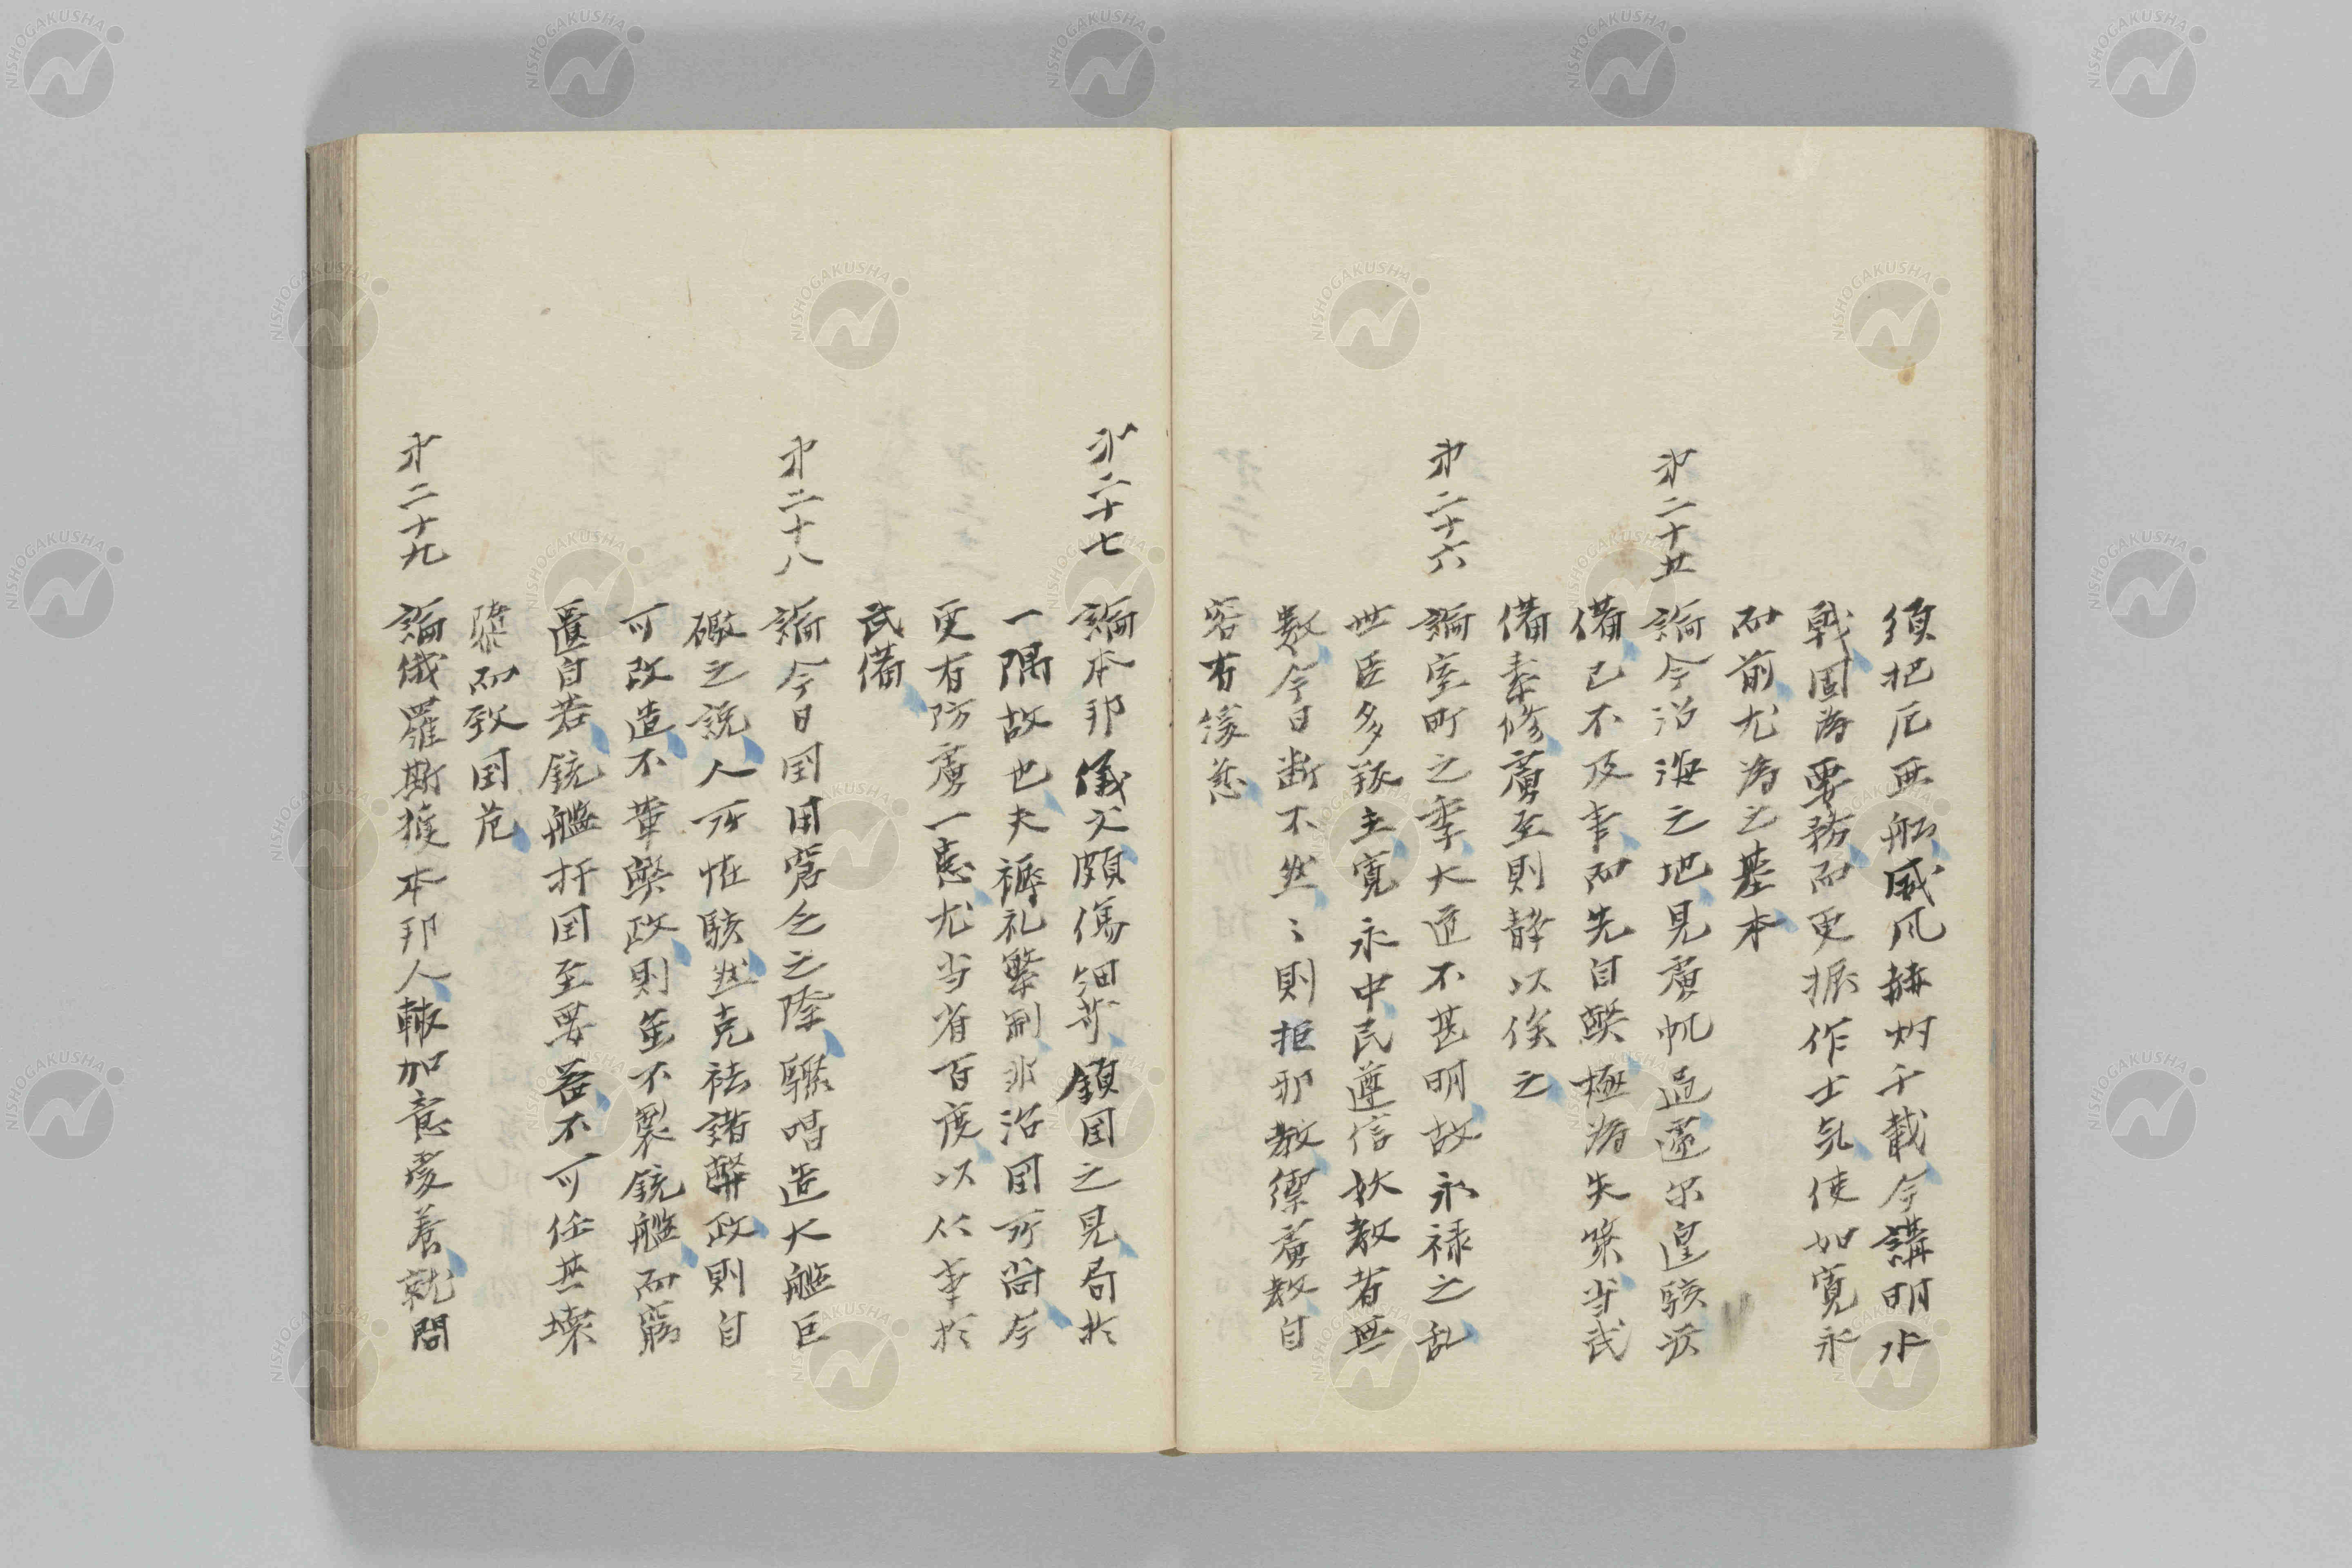 須把厄亜船威風赫灼千載今講明水
戦固為要務而更振作士気使如寛永
而前尤為之基本
第二十五 論今沿海之地見虜帆過還尔遑駭汲
備已不及事而先自弊極為失策当武
備素修虜至則静以俟之
第二十六 論室町之季大道不甚明故永禄之乱
世臣多叛主寛永中民遵信妖教者無
数今日断不然〻則拒邪教禦虜教自
容有緩急
第二十七 論本邦儀文頗傷細苛鎖国之見局於
一隅故也夫褥礼繁制非治国所尚今
更有防虜一患尤当省百度以从事於
武備
第二十八 論今日国用窘乏之際驟唱造大艦巨
礮之説人所怪駭然克祛諸弊政則自
可改造不革弊政則並不製銃艦而窮
匱自若銃艦扞国至要器不可任其壊
隳而致国危
第二十九 論俄羅斯獲本邦人輙加意愛養就問
NISHOGAKUSHA